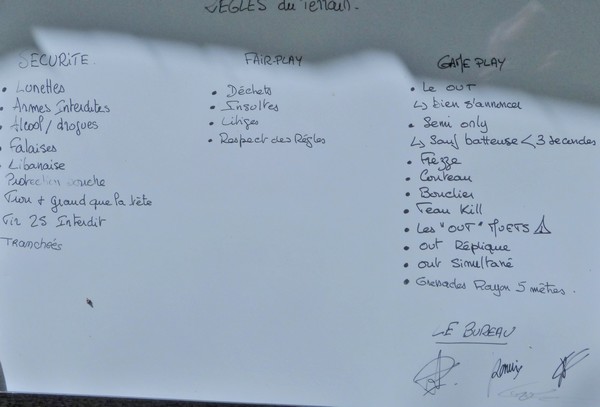 REGLES du Terrain.
SECURITE.
• Lunettes
• Armes Interdites
• Alcool / drogues
• Falaises
• Libanaise
Protection bouche
Trou + grand que la tête
Tir 25 Interdit
TRANCHÉES
FAIR-PLAY
• Déchets
• Insultes
• Litiges
• Respect des Règles
GAME PLAY
• Le OUT
↳ bien s'annoncer
• Semi only
↳ Sauf batteuse < 3 secondes
• Frezze
• Couteau
• Bouclier
• Team Kill
• Les "OUT" MUETS ⚠
• Out Réplique
• out Simultané
• Grenades Rayon 5 mètres.
LE BUREAU